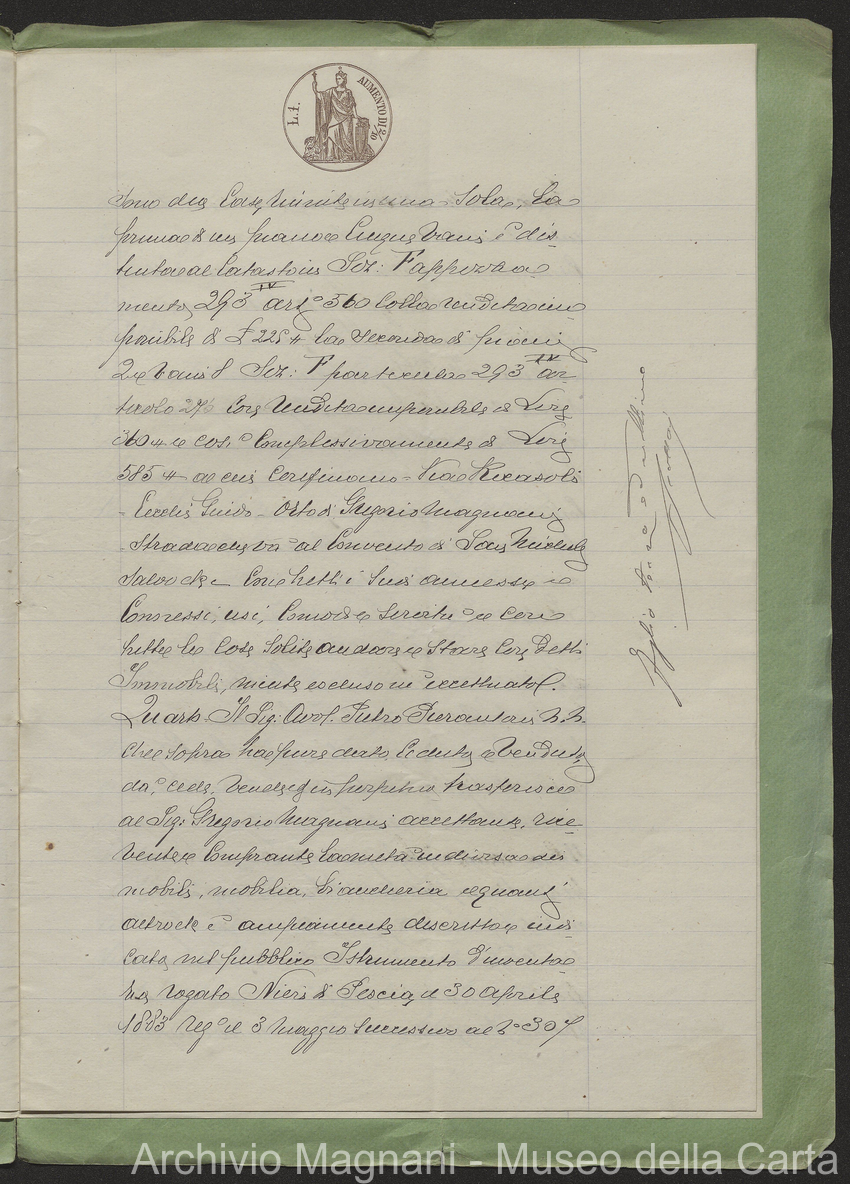 L. 1. AUMENTO DI 2/10
sono due Case, riunite in una sola, La
prima di un piano e Cinque Vani è dis-
tinta al Catasto in Sez: F appezza-
mento 293 IV art° 560 colla rendita im
ponibile di £ 225 = la seconda di piani
2 e Vani 8 Sez: F particella 293 IV ar-
ticolo 276 Con rendita imponibile di Lire
360 = e così Complessivamente di Lire
585 = a cui Confinano = Via Ricasoli
Guido = Orto di Grgorio Magnani
Strada che va al Convento di San Michele
salvo se = Con tutti i suoi annessi e
Connessi, usi, Comodi e servitù e con
tutte le Cose solite andare e stare Con detti
Immobili, niente escluso nè eccettuato.
Quarto = Il Sig: Avv. Pietro Pierantoni N. N.
Che sopra ha pure dato, Ceduto e Venduto
dà, cede, vende ed in perpetuo trasferisce
al Sig: Gregorio Magnani accettante, rice-
vente e Comprante la metà indivisa dei
mobili, mobilia, biancheria e quant'
altro che è ampiamente descritto e indi-
cato nel pubblico Istrumento d'inventa-
rio rogato Nieri di Pescia, il 30 aprile
1883 reg° il 3 maggio successivo al N° 307
Archivio Magnani - Museo della Carta